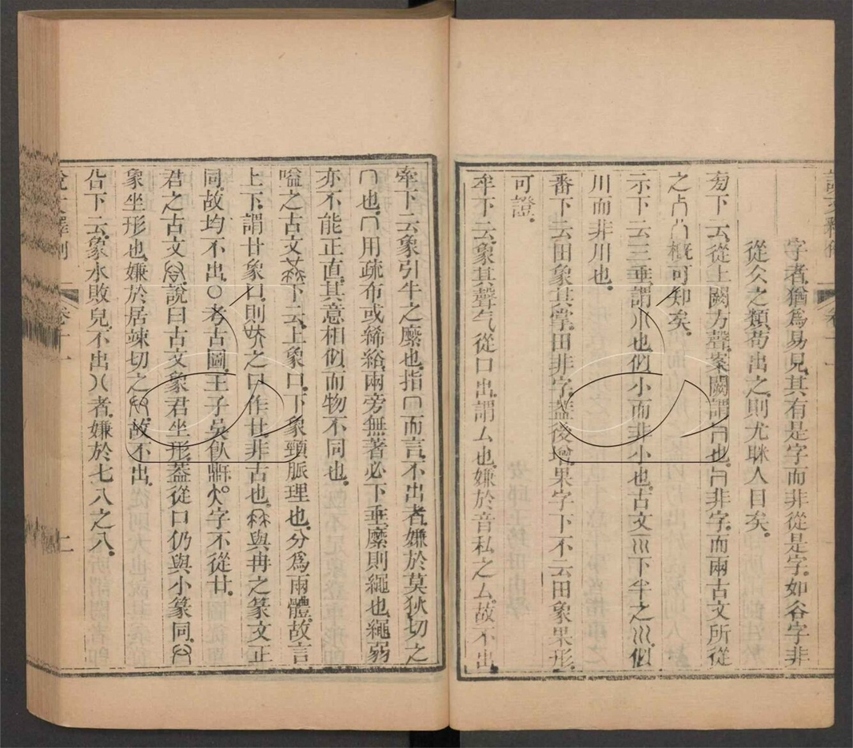 字者猶爲易見其有是字而非從是字如谷字非
從仌之類苟出之則尤眯人目矣
㫄下云從上闕方聲案闕謂冂也冂非字而兩古文所從
之概可知矣
示下云三垂謂川也似小而非小也古文巛下半之巛似
川而非川也
番下云田象其掌田非字蓋後增果字下不云田象果形
可證
牟下云象其聲气從口出謂厶也嫌於音私之厶故不出
牽下云象引牛之縻也指冂而言不出者嫌於莫狄切之
冂也冂用疏布或絺綌兩旁無著必下垂縻則繩也繩弱
亦不能正直其意相似而物不同也
嗌之古文下云上象口下象頸脈理也分爲兩體故言
上下謂廿象口則之口作廿非古也與冉之篆文正
同故均不出〇考古圖王子吳飤鼎字不從廿
君之古文說曰古文象君坐形蓋從口仍與小篆同
象坐形也嫌於居竦切之故不出
㕣下云象水敗皃不出八者嫌於七八之八
說文釋例 卷十一